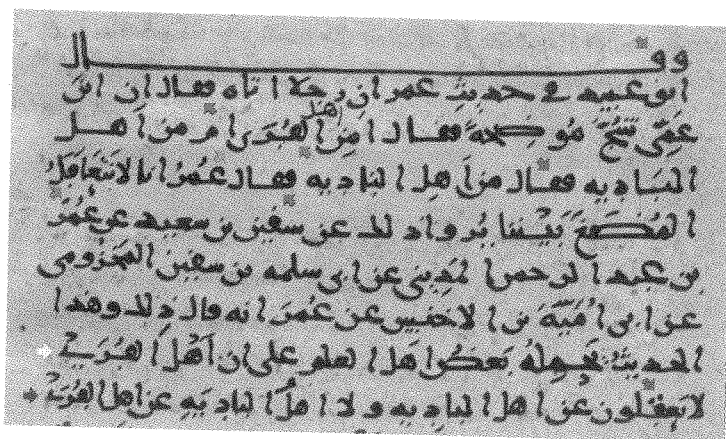 وقال
ابو عبيد في حديث عمر ان رجلا اتاه فقال ان ابن
عمي شج موضحة فقال امن اهل القرى ام من اهل
البادية فقال من اهل البادية فقال عمر انا لا نتعاقل
المضغ بيننا يروا ذلك عن سفين بن سعيد عن عمر
بن عبد الرحمن المديني عن ابي سلمه بن سفين المخزومي
عن ابي امية بن الاخنس عن عمر انه قال ذلك وهذا
الحديث يحمله بعض اهل العلم على ان اهل القرى
لا يعقلون عن اهل البادية ولا اهل البادية عن اهل القرى